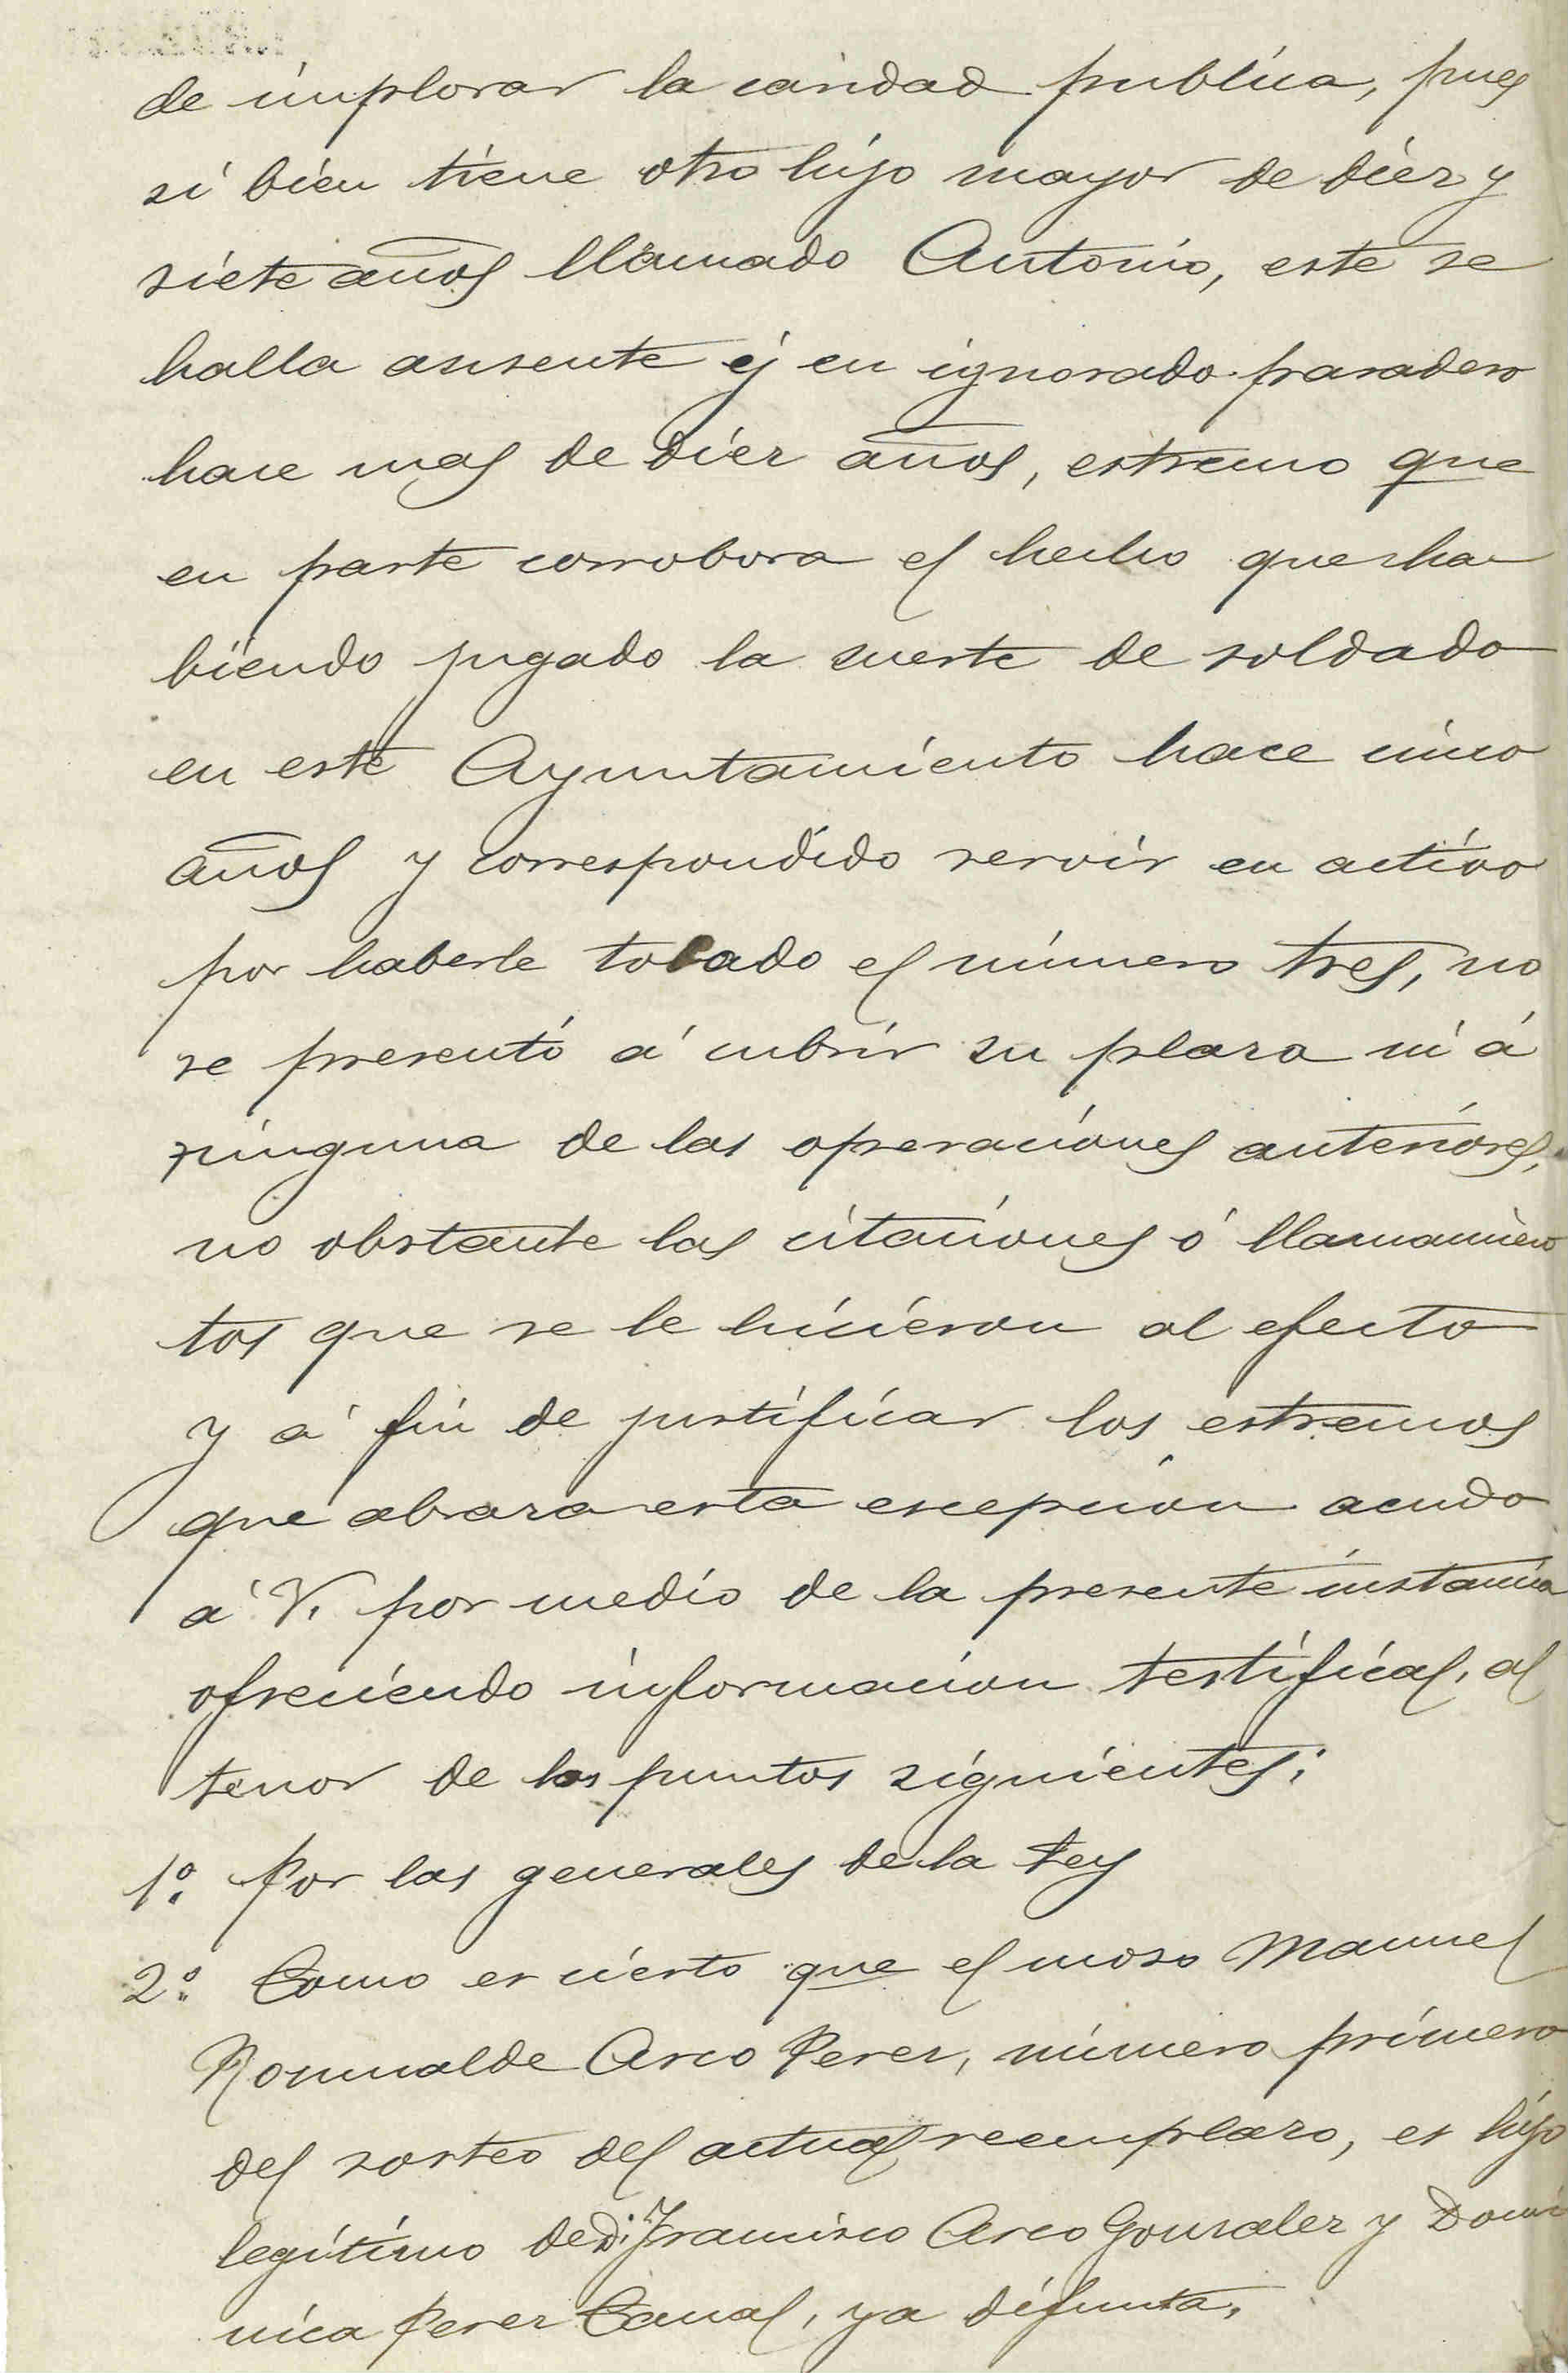 de implorar la caridad publica, pues
si bien tiene otro hijo mayor de diez y
siete años llamado Antonio, este se
halla ausente é en ignorado paradero
hace mas de diez años, estremo que
en parte corrobora el hecho que ha
biendo jugado la suerte de soldado
en este Ayuntamiento hace cinco
años y correspondido servir en activo
por haberle tocado el número tres, no
se presentó á cubrir su plaza ni á
ninguna de las operaciones anteriores,
no obstante las citaciones ó llamamien
tos que se le hicieron al efecto
y á fin de justificar los estremos
que abraza esta escepcion acudo
á V. por medio de la presente instancia
ofreciendo informacion testifical, al
tenor de los puntos siguientes:
1º. Por las generales de la Ley
2º. Como es cierto que el mozo Manuel
Romualde Arco Perez, número primero
del sorteo del actual reemplazo, es hijo
legítimo de D. Francisco Arco Gonzalez y Domi
nica Perez Canal, ya difunta,